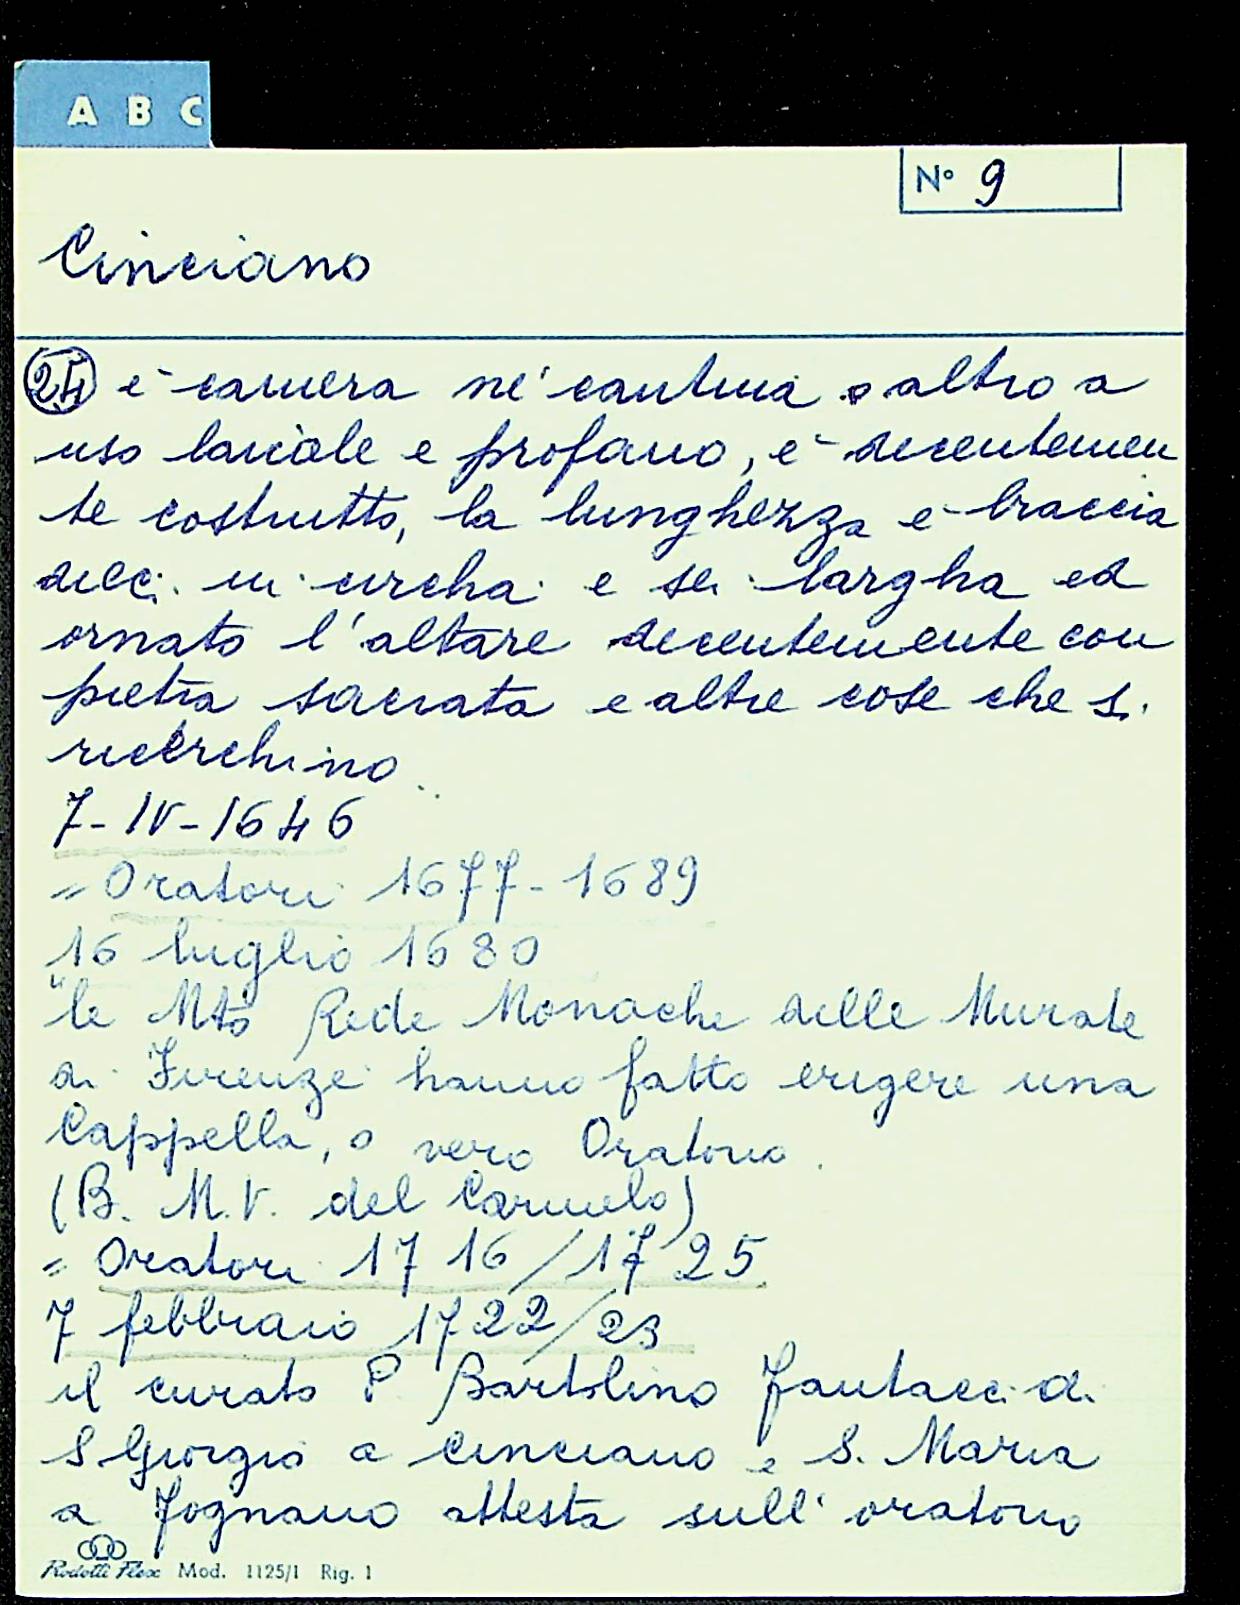 A B C
N° 9
Cinciano
24 è camera né cantina o altro a
uso laicale e profano, è decentemen
te costrutto, la lunghezza è braccia
dieci in circha e sei largha ed
ornato l'altare decentemente con
pietra sacrata e altre cose che si
ricerchino.
7-IV-1646
= Oratori 1677-1689
16 luglio 1680
"le Mto Rede Monache delle Murate
di Firenze hanno fatto erigere una
Cappella, o vero Oratorio.
(B. M.V. del Carmelo)
= Oratori 1716/1725
7 febbraio 1722/23
il curato P Bartolino Fantacci di
S Giorgio a Cinciano e S. Maria
a Fognano attesta sull'oratorio
Rodotti Flex Mod. 1125/1 Rig. 1